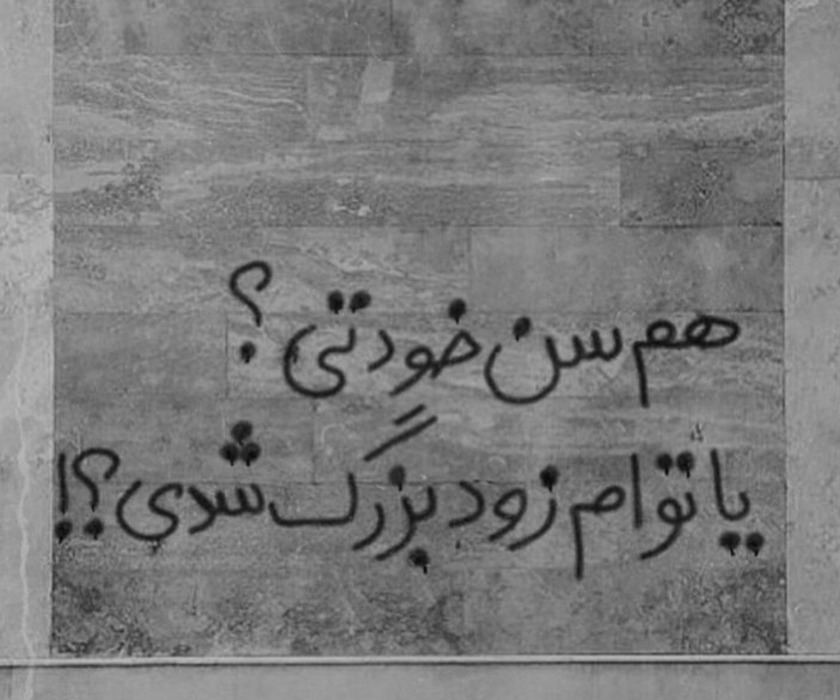 هم سن خودتی ؟
یا توام زود بزرگ شدی ؟!